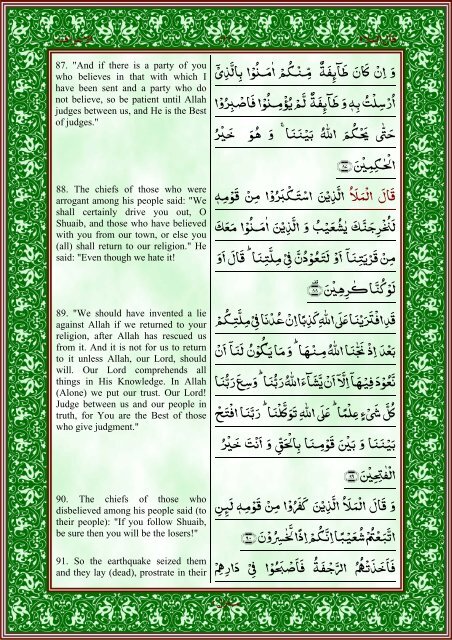 87. "And if there is a party of you
who believes in that with which I
have been sent and a party who do
not believe, so be patient until Allah
judges between us, and He is the Best
of judges."
وَ اِنْ كَانَ طَآىِٕفَةٌ مِّنْكُمْ اٰمَنُوْا بِالَّذِیْۤ
اُرْسِلْتُ بِهٖ وَ طَآىِٕفَةٌ لَّمْ یُؤْمِنُوْا فَاصْبِرُوْا
حَتّٰى یَحْكُمَ اللّٰهُ بَیْنَنَا ۚ وَ هُوَ خَیْرُ
الْحٰكِمِیْنَ ﴿٨٧﴾
88. The chiefs of those who were
arrogant among his people said: "We
shall certainly drive you out, O
Shuaib, and those who have believed
with you from our town, or else you
(all) shall return to our religion." He
said: "Even though we hate it!
قَالَ الْمَلَاُ الَّذِیْنَ اسْتَكْبَرُوْا مِنْ قَوْمِهٖ
لَنُخْرِجَنَّكَ یٰشُعَیْبُ وَ الَّذِیْنَ اٰمَنُوْا مَعَكَ
مِنْ قَرْیَتِنَاۤ اَوْ لَتَعُوْدُنَّ فِیْ مِلَّتِنَا ؕ قَالَ اَوَ
لَوْ كُنَّا كٰرِهِیْنَ ﴿٨٨﴾
89. "We should have invented a lie
against Allah if we returned to your
religion, after Allah has rescued us
from it. And it is not for us to return
to it unless Allah, our Lord, should
will. Our Lord comprehends all
things in His Knowledge. In Allah
(Alone) we put our trust. Our Lord!
Judge between us and our people in
truth, for You are the Best of those
who give judgment."
قَدِ افْتَرَیْنَا عَلَى اللّٰهِ كَذِبًا اِنْ عُدْنَا فِیْ مِلَّتِكُمْ
بَعْدَ اِذْ نَجّٰىنَا اللّٰهُ مِنْهَا ؕ وَ مَا یَكُوْنُ لَنَاۤ اَنْ
نَّعُوْدَ فِیْهَاۤ اِلَّاۤ اَنْ یَّشَآءَ اللّٰهُ رَبُّنَا ؕ وَسِعَ رَبُّنَا
كُلَّ شَیْءٍ عِلْمًا ؕ عَلَى اللّٰهِ تَوَكَّلْنَا ؕ رَبَّنَا افْتَحْ
بَیْنَنَا وَ بَیْنَ قَوْمِنَا بِالْحَقِّ وَ اَنْتَ خَیْرُ
الْفٰتِحِیْنَ ﴿٨٩﴾
90. The chiefs of those who
disbelieved among his people said (to
their people): "If you follow Shuaib,
be sure then you will be the losers!"
وَ قَالَ الْمَلَاُ الَّذِیْنَ كَفَرُوْا مِنْ قَوْمِهٖ لَىِٕنِ
اتَّبَعْتُمْ شُعَیْبًا اِنَّكُمْ اِذًا لَّخٰسِرُوْنَ ﴿٩٠﴾
91. So the earthquake seized them
and they lay (dead), prostrate in their
فَاَخَذَتْهُمُ الرَّجْفَةُ فَاَصْبَحُوْا فِیْ دَارِهِمْ